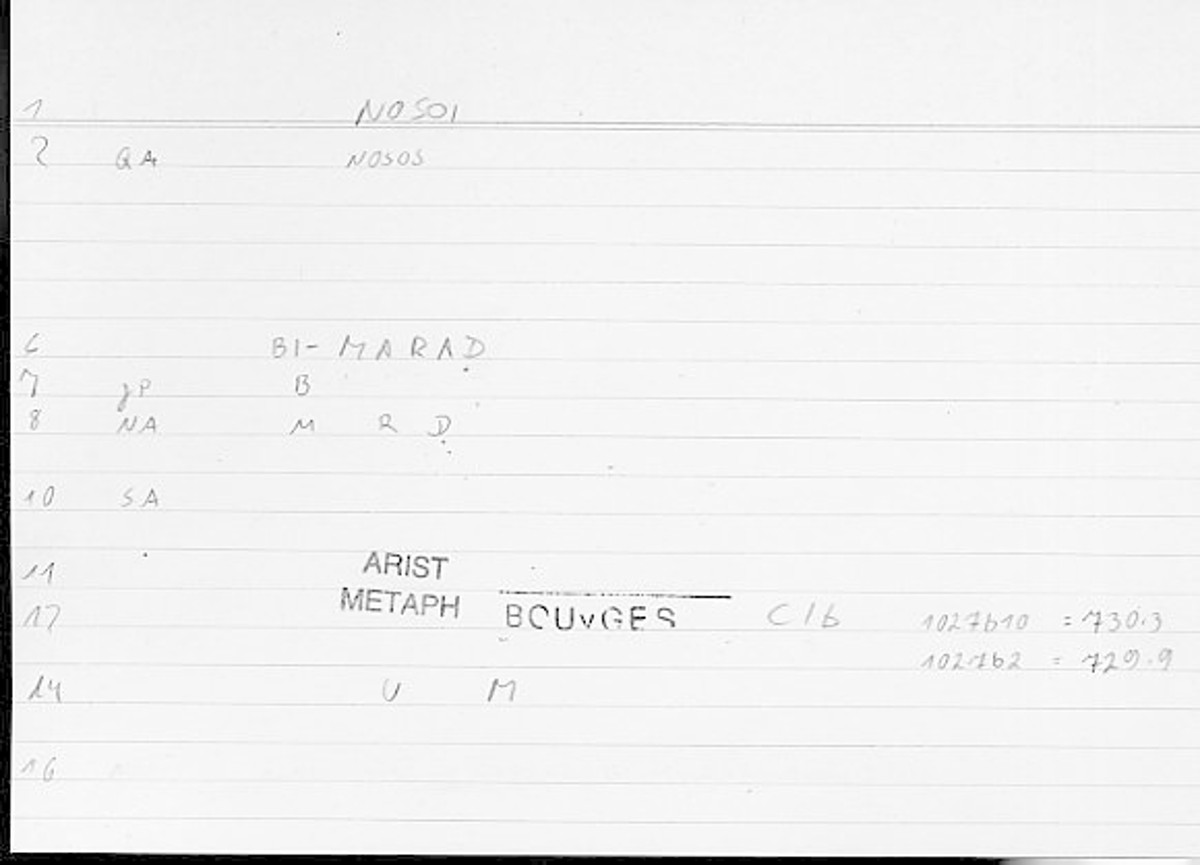 1 NOSOI
2 QA NOSOS
6 BI- MARAḌ
7 JP B
8 NA M R Ḍ
10 SA
11 ARIST
12 METAPH BOUYGES C/b 1027b10 = 730.3
1027b2 = 729.9
14 U M
16